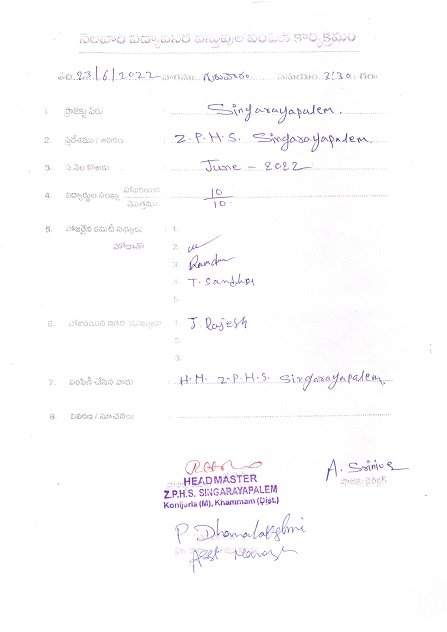 నెలవారి విద్యావసర వస్తువుల పంపిణీ కార్యక్రమం
తేది. 23/6/2022 వారము గురువారం సమయం 3:30 గం॥
1. ప్రాజెక్టు పేరు Singarayapalem.
2. ప్రదేశము / జనరం Z.P.H.S. Singarayapalem.
3. ఏ నెల కొరకు June - 2022
4. విద్యార్థుల సంఖ్య హాజరయిన 10
మొత్తము 10
5. హాజరైన కమిటీ సభ్యులు 1.
హోదాతో 2.
3.
4. T. Santhosh
5.
6. హాజరయిన ఇతర ముఖ్యులు 1. J. Rajesh
2.
3.
7. పంపిణీ చేసిన వారు H.M. Z.P.H.S. Singarayapalem.
8. వివరణ / సూచనలు
A. Srinivas
HEADMASTER
Z.P.H.S. SINGARAYAPALEM
Konijurla (M), Khammam (Dist.)
ప్రాజెక్టు డైరెక్టర్
P Dhanalakshmi
Asst Manager